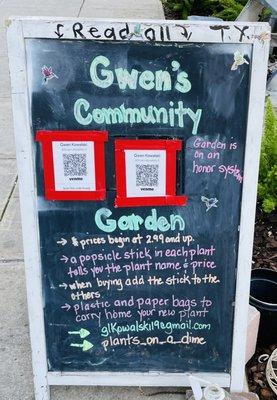 ↓Read all↓ TY
Gwen's
Community
Garden is
on an
honor system
Gwen Kowalski
venmo
Gwen Kowalski
venmo
Garden
→ $ prices begin at 2.99 and up.
→ a popsicle stick in each plant
tells you the plant name & price
→ when buying add the stick to the
others.
→ plastic and paper bags to
carry home your new plant
→ glkowalski19@gmail.com
→ plants_on_a_dime